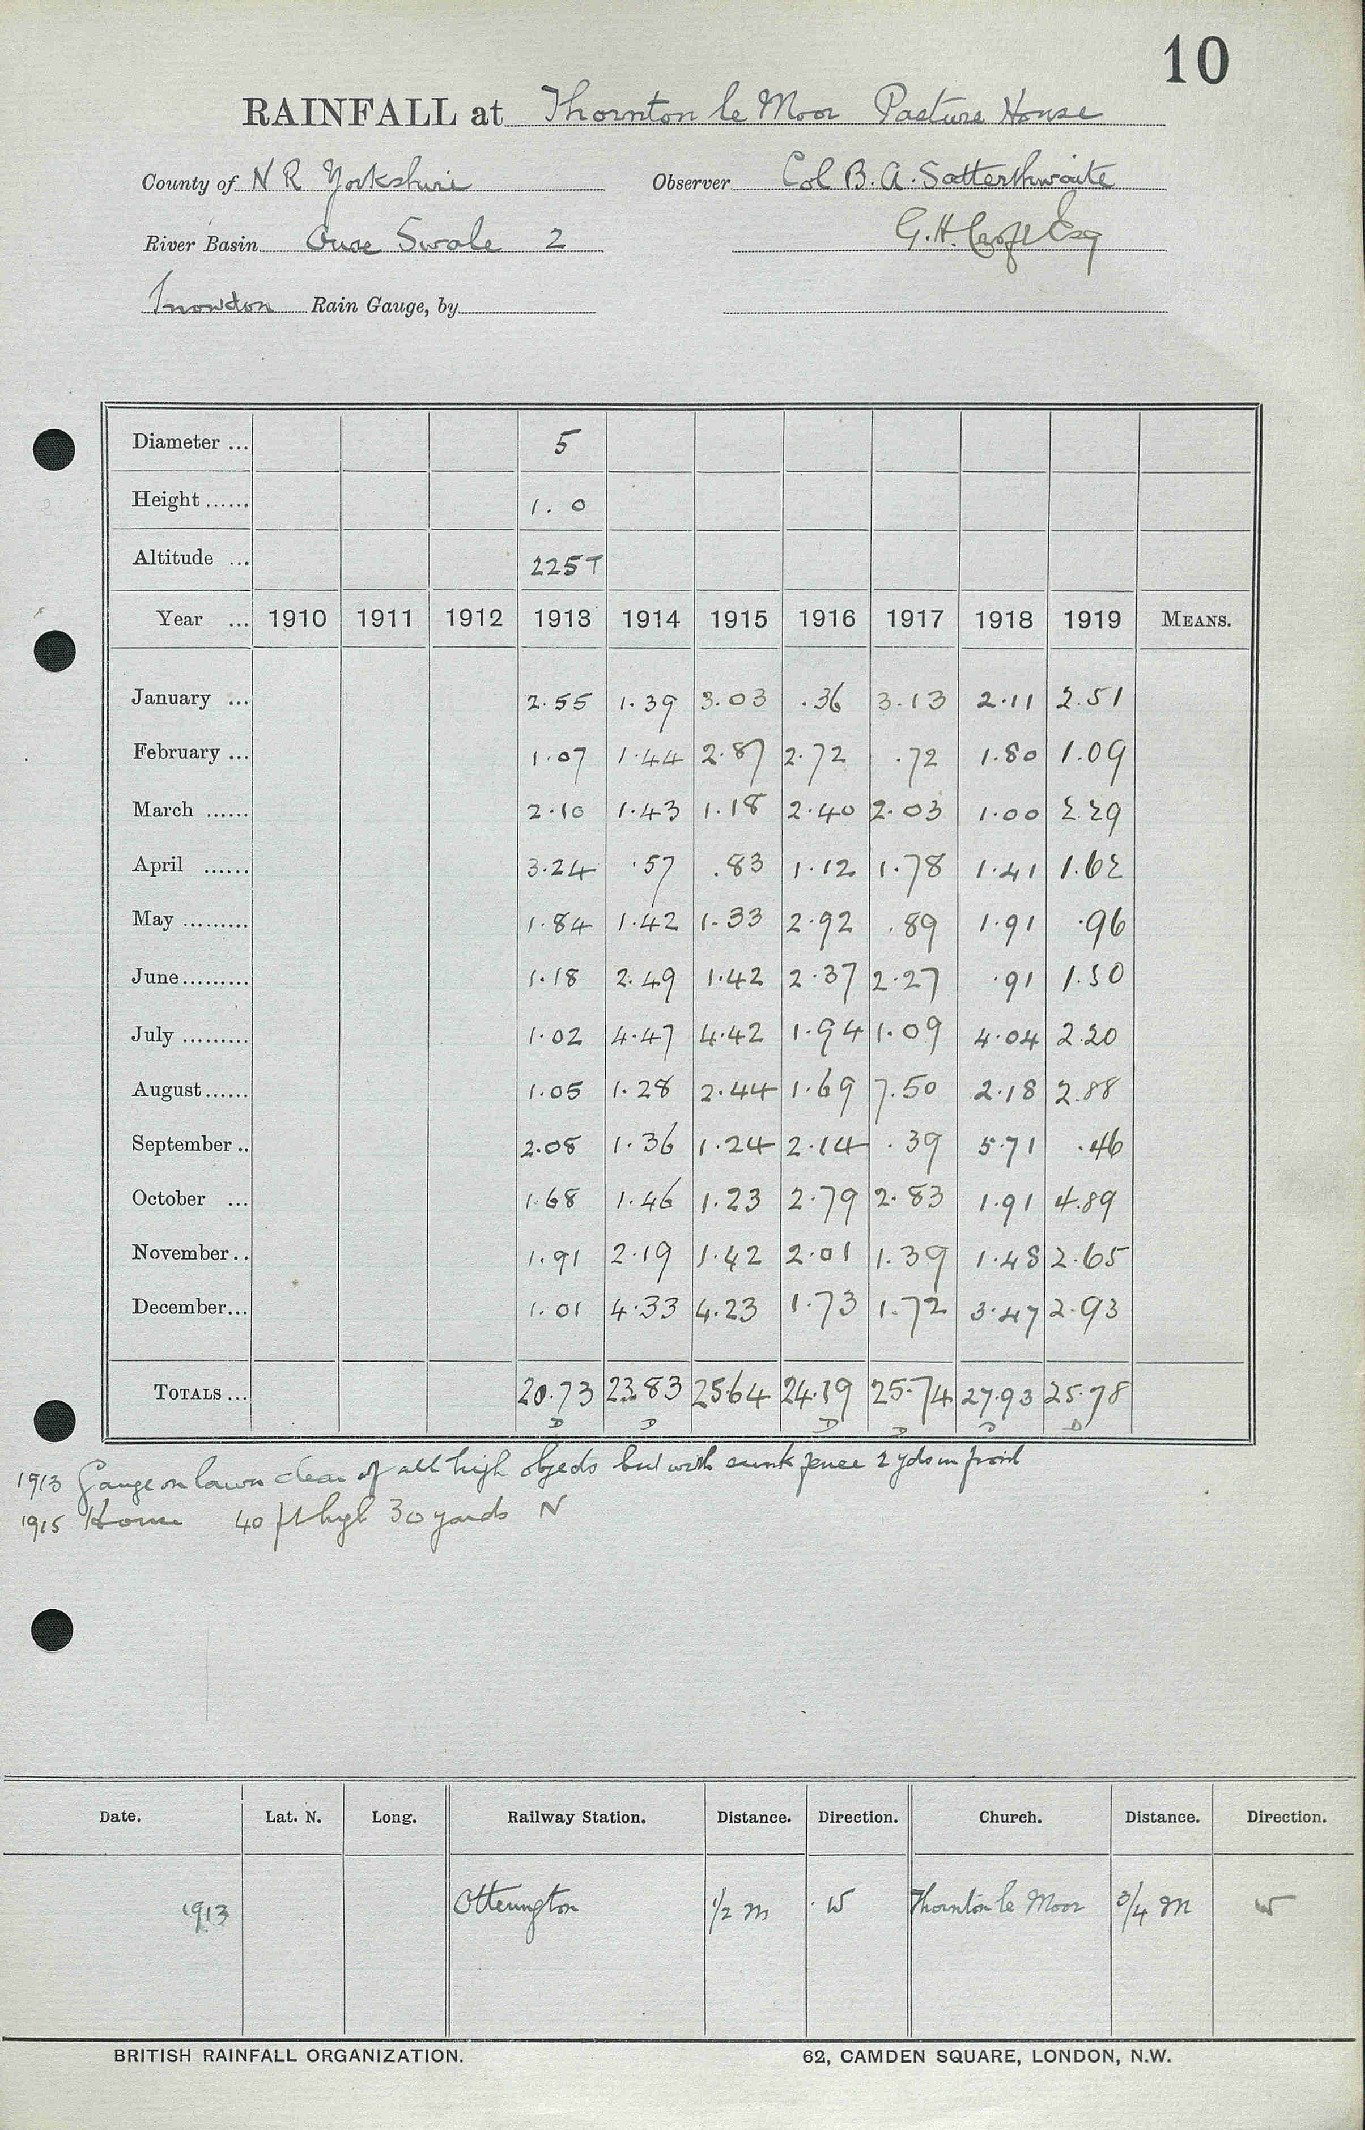 10
RAINFALL at Thornton le Moor Pasture House
County of N R Yorkshire Observer Col B. A. Satterthwaite
River Basin Ouse Swale 2 G. H. Esq
Snowdon Rain Gauge, by
Diameter ... 5
Height ...... 1. 0
Altitude ... 225T
Year ... 1910 1911 1912 1913 1914 1915 1916 1917 1918 1919 MEANS.
January ... 2.55 1.39 3.03 .36 3.13 2.11 2.51
February ... 1.07 1.44 2.87 2.72 .72 1.80 1.09
March ...... 2.10 1.43 1.18 2.40 2.03 1.00 2.29
April ...... 3.24 .57 .83 1.12 1.78 1.41 1.62
May ......... 1.84 1.42 1.33 2.92 .89 1.91 .96
June ......... 1.18 2.49 1.42 2.37 2.27 .91 1.50
July ......... 1.02 4.47 4.42 1.94 1.09 4.04 2.20
August ...... 1.05 1.28 2.44 1.69 7.50 2.18 2.88
September .. 2.08 1.36 1.24 2.14 .39 5.71 .46
October ... 1.68 1.46 1.23 2.79 2.83 1.91 4.89
November .. 1.91 2.19 1.42 2.01 1.39 1.48 2.65
December ... 1.01 4.33 4.23 1.73 1.72 3.47 2.93
TOTALS ... 20.73 23.83 25.64 24.19 25.74 27.93 25.78
D D D D D D
1913 Gauge on lawn clear of all high objects but with sunk fence 2 yds in front
1915 House 40 ft high 30 yards N
Date. Lat. N. Long. Railway Station. Distance. Direction. Church. Distance. Direction.
1913 Otterington 1/2 m W Thornton le Moor 3/4 m W
BRITISH RAINFALL ORGANIZATION. 62, CAMDEN SQUARE, LONDON, N.W.